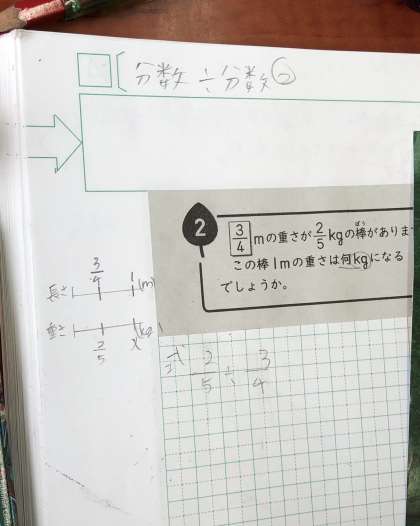 分数÷分数⑥
2
3/4 mの重さが 2/5 kgの棒がありま
ぼう
この棒1mの重さは何kgになる
でしょうか。
3/4 1
長さ (m)
重さ (kg)
2/5 x
式 2/5 ÷ 3/4